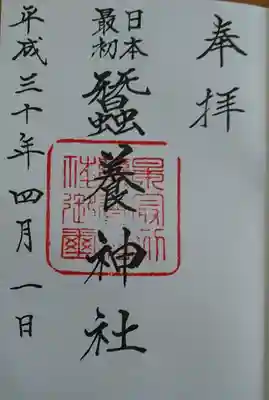 奉拝
日本
最初
蚕養神社
平成三十年四月一日